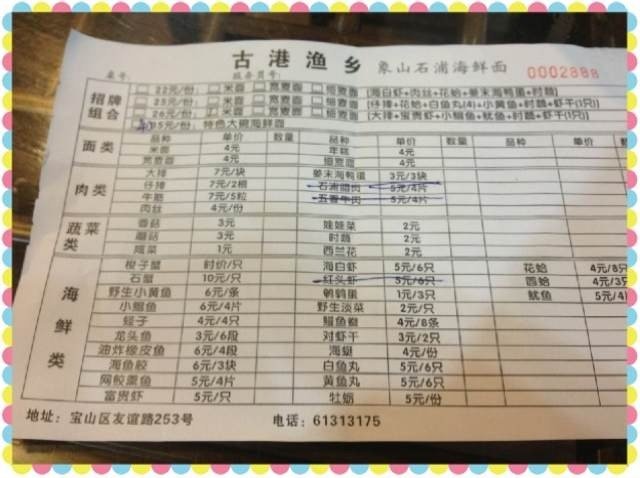 古港渔乡 象山石浦海鲜面 0002888
桌号: 服务员号:
招牌组合
22元/份: 米面 宽麦面 细麦面 (海白虾+肉丝+花蛤+姜末海鸭蛋+时蔬)
25元/份: 米面 宽麦面 细麦面 (仔排+花蛤+白鱼丸(4)+小黄鱼+时蔬+虾干(1只))
26元/份: 米面 宽麦面 细麦面 (大排+宝贵虾+小鲳鱼+鱿鱼+时蔬+虾干(1只))
35元/份: 特色大碗海鲜面
面类 品种 单价 数量 品种 单价 数量
米面 4元 年糕 4元
宽麦面 4元 细麦面 4元
肉类 大排 7元/块 姜末海鸭蛋 3元/3块
仔排 7元/2根 石浦腊肉 5元/4片
牛筋 7元/5粒 五香牛肉 5元/4片
肉丝 4元/份
蔬菜类 香菇 3元 娃娃菜 2元
蘑菇 3元 时蔬 2元
咸菜 1元 西兰花 2元
海鲜类 梭子蟹 时价/只 海白虾 5元/6只 花蛤 4元/8只
石蟹 10元/只 红头虾 5元/6只 圆蛤 4元/3
野生小黄鱼 6元/条 鹌鹑蛋 1元/3只 鱿鱼 5元/4
小鲳鱼 6元/4片 野生淡菜 2元/只
蛏子 4元/4只 鳗鱼鲞 4元/8条
龙头鱼 3元/6段 对虾干 3元/2只
油炸橡皮鱼 6元/4段 海蜓 4元/份
海鱼胶 6元/3块 白鱼丸 5元/6只
网鲛熏鱼 5元/4片 黄鱼丸 5元/6只
富贵虾 5元/只 牡蛎 5元/份
地址: 宝山区友谊路253号 电话: 61313175